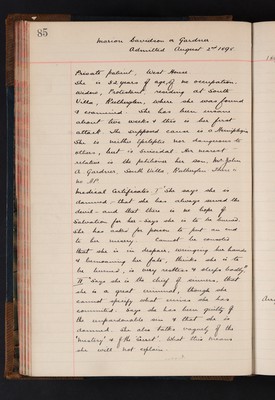 85
Marion Davidson or Gardner
Admitted August 2nd 1895
Private patient, West House
She is 52 years of age, of no occupation.
Widow, Protestant residing at South
Villa, Ratho, where she was found
& examined. She has been insane
about two weeks & this is her first
attack. The supposed cause is
She is neither Epileptic nor dangerous to
others, but is Suicidal. Her nearest
relative is the petitioner her son, Mr John
A. Gardner, South Villa, There is
no
Medical Certificates I "She says she is
damned - that she has always served the
devil - and that there is no hope of
Salvation for her. Says she is to be burned.
She has asked for poison to put an end
to her misery. Cannot be consoled
that she is in despair, wringing her hands
& bemoaning her fate, thinks she is to
be burned, is very restless & sleeps badly"
II "Says she is the chief of sinners, that
she is a great criminal, though she
cannot specify what crimes she has
committed. Says she has been guilty of
the unpardonable sin & that she is
damned. She also talks vaguely of the
'mystery' & of the 'secret'. What this means
she will not explain.